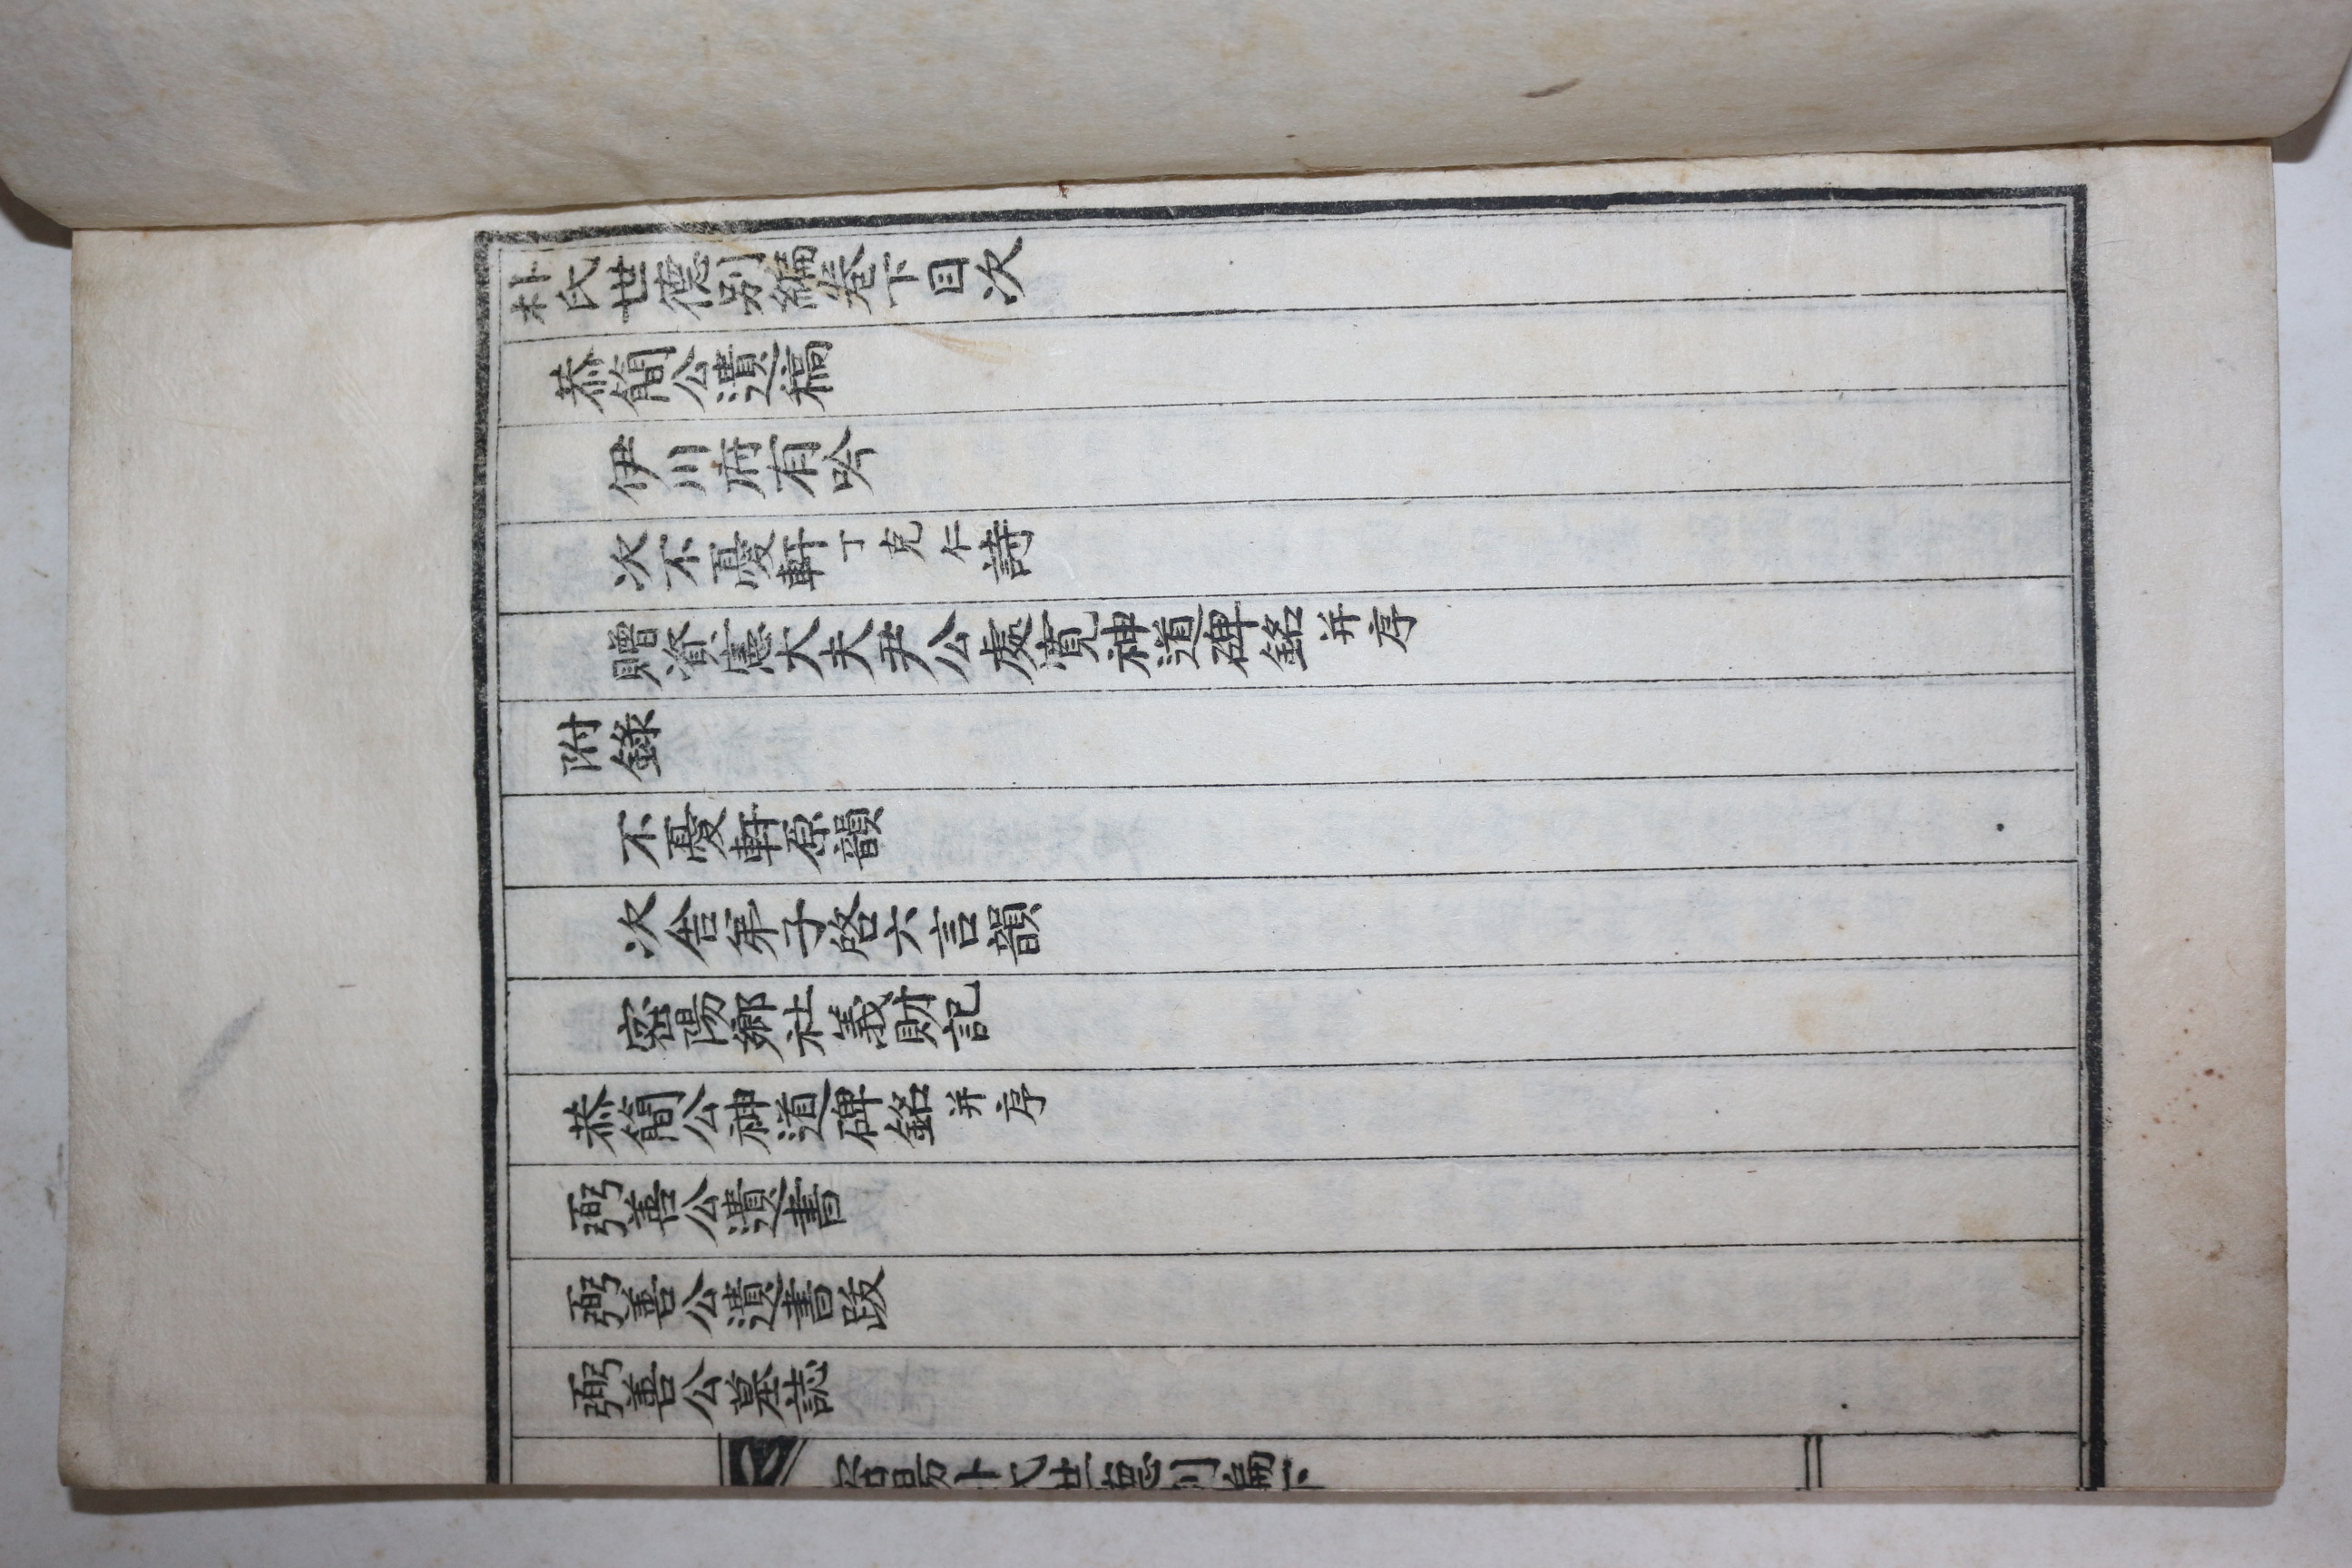 朴氏世德別編卷下目次
恭簡公遺稿
伊川府有吟
次不憂軒丁克仁詩
贈資憲大夫尹公處寬神道碑銘并序
附錄
不憂軒原韻
次舍弟子啓六言韻
密陽鄉社義財記
恭簡公神道碑銘并序
弼善公遺書
弼善公遺書跋
弼善公墓誌
密陽朴氏世德別編下